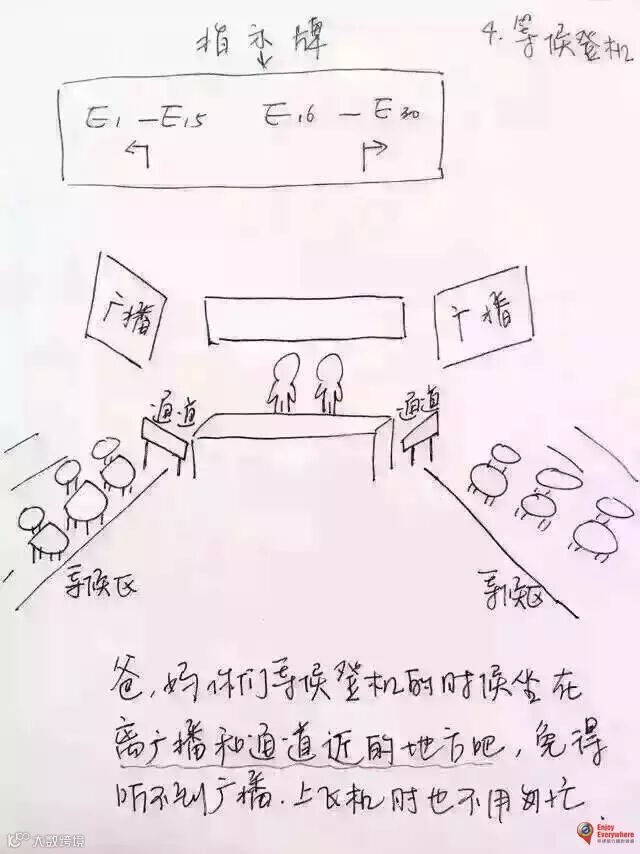 指示牌
4.等候登机
E1—E15 E16—E30
广播
广播
通道
通道
等候区
等候区
爸,妈你们等候登机的时候坐在
离广播和通道近的地方吧,免得
听不到广播.上飞机时也不用匆忙.
大数跨境
Enjoy
Everywhere